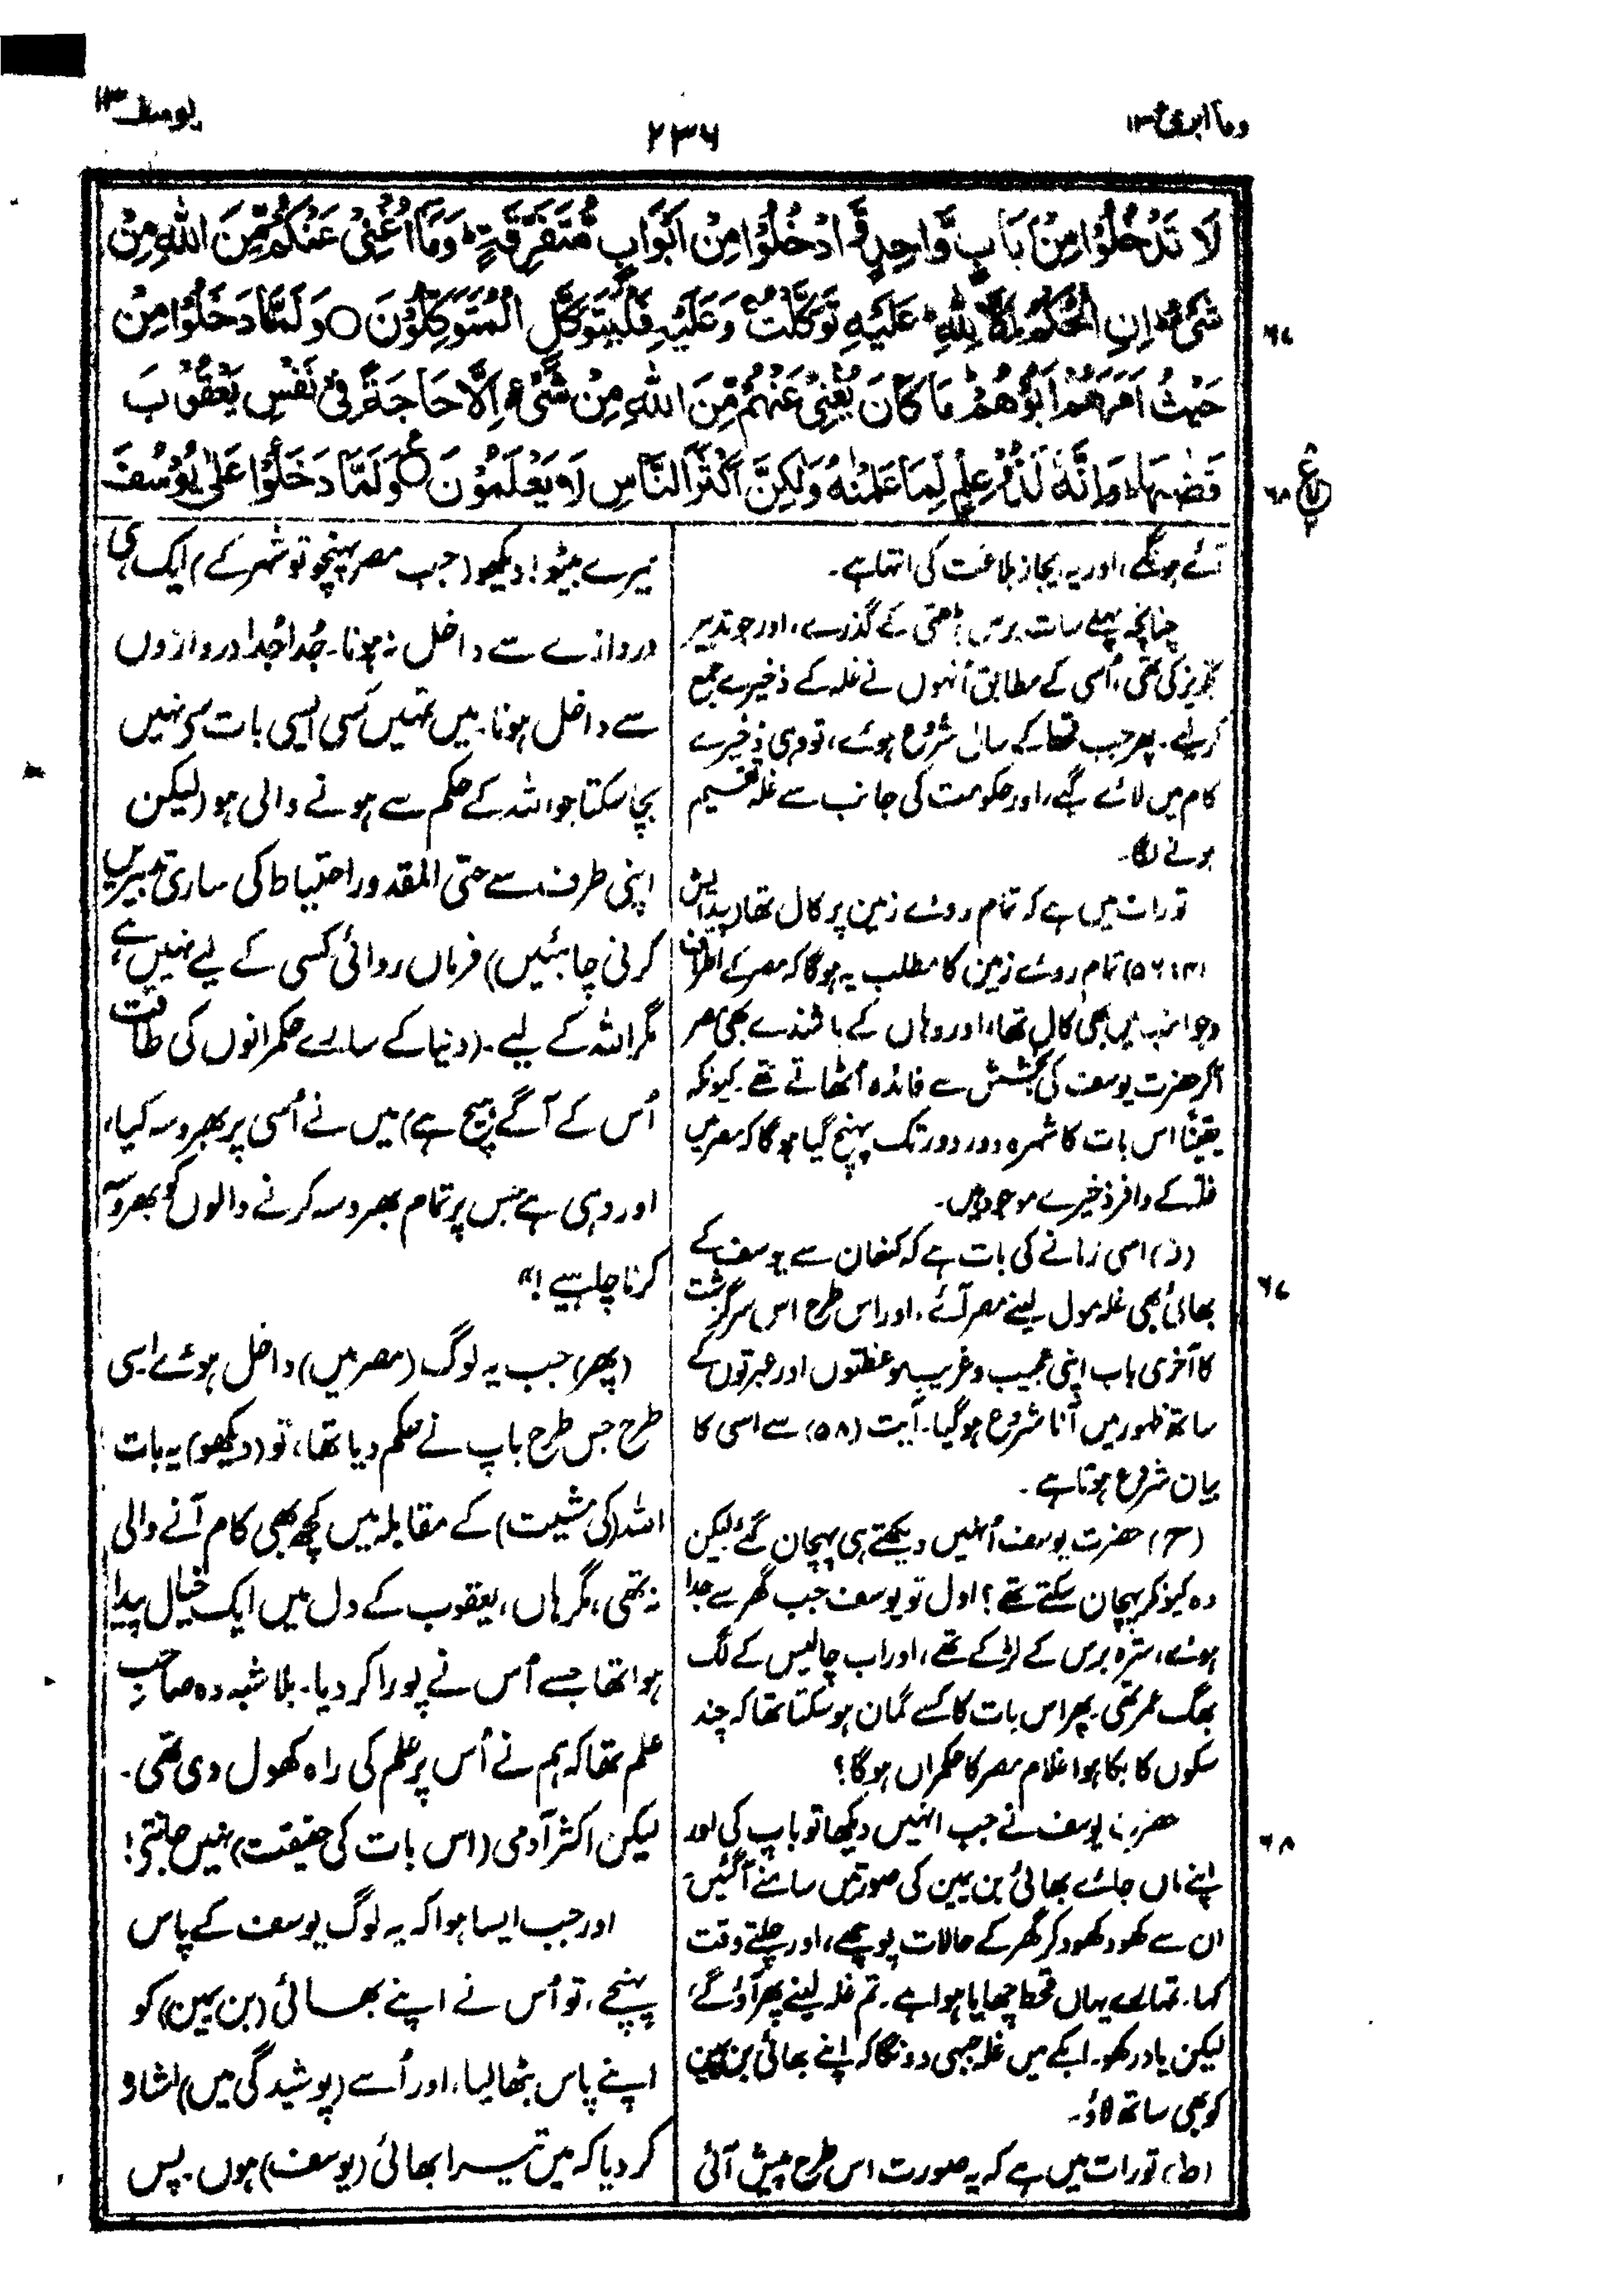 وما ابرئ ۱۳
۲۳۶
یوسف ۱۲
لَا تَدْخُلُوْا مِنْۢ بَابٍ وَّاحِدٍ وَّ ادْخُلُوْا مِنْ اَبْوَابٍ مُّتَفَرِّقَةٍ ؕ وَمَاۤ اُغْنِیْ عَنْكُمْ مِّنَ اللّٰهِ مِنْ
شَیْءٍ ؕ اِنِ الْحُكْمُ اِلَّا لِلّٰهِ ؕ عَلَيْهِ تَوَكَّلْتُ ۚ وَعَلَيْهِ فَلْيَتَوَكَّلِ الْمُتَوَكِّلُوْنَ ○ وَلَمَّا دَخَلُوْا مِنْ
۶۷
حَيْثُ اَمَرَهُمْ اَبُوْهُمْ ؕ مَا كَانَ يُغْنِیْ عَنْهُمْ مِّنَ اللّٰهِ مِنْ شَیْءٍ اِلَّا حَاجَةً فِیْ نَفْسِ يَعْقُوْبَ
قَضٰىهَا ؕ وَاِنَّهٗ لَذُوْ عِلْمٍ لِّمَا عَلَّمْنٰهُ وَلٰكِنَّ اَكْثَرَ النَّاسِ لَا يَعْلَمُوْنَ ○ وَلَمَّا دَخَلُوْا عَلٰى يُوْسُفَ
۶۸
آئے ہونگے، اور یہ ایجاز بلاغت کی انتہا ہے۔
چنانچہ پہلے سات برس بڑھتی کے گذرے، اور جو تدبیر
تجویز کی تھی، اُسی کے مطابق اُنہوں نے غلہ کے ذخیرے جمع
کرلیے۔ پھر جب قحط کے سال شروع ہوئے، تو وہی ذخیرے
کام میں لائے گئے، اور حکومت کی جانب سے غلہ تقسیم
ہونے لگا۔
تورات میں ہے کہ تمام روئے زمین پر کال تھا (پیدائش
۴۱:۵۶) تمام روئے زمین کا مطلب یہ ہوگا کہ مصر کے اطراف
وجوانب میں بھی کال تھا، اور وہاں کے باشندے بھی مصر
آکر حضرت یوسف کی بخشش سے فائدہ اُٹھاتے تھے۔ کیونکہ
یقیناً اس بات کا شہرہ دور دور تک پہنچ گیا ہوگا کہ مصر میں
غلہ کے وافر ذخیرے موجود ہیں۔
(ز) اسی زمانے کی بات ہے کہ کنعان سے یوسف کے
بھائی بھی غلہ مول لینے مصر آئے، اور اس طرح اس سرگزشت
کا آخری باب اپنی عجیب وغریب موعظتوں اور عبرتوں کے
ساتھ ظہور میں آنا شروع ہوگیا۔ آیت (۵۸) سے اسی کا
بیان شروع ہوتا ہے۔
(ح) حضرت یوسف اُنہیں دیکھتے ہی پہچان گئے، لیکن
وہ کیونکر پہچان سکتے تھے؟ اول تو یوسف جب گھر سے جدا
ہوئے، سترہ برس کے لڑکے تھے، اور اب چالیس کے لگ
بھگ عمر تھی۔ پھر اس بات کا کسے گمان ہوسکتا تھا کہ چند
سکوں کا بکا ہوا غلام مصر کا حکمراں ہوگا؟
حضرت یوسف نے جب انہیں دیکھا تو باپ کی اور
اپنے ماں جائے بھائی بن یمین کی صورتیں سامنے آگئیں۔
ان سے کھود کھود کر گھر کے حالات پوچھے، اور چلتے وقت
کہا۔ تمہارے یہاں قحط چھایا ہوا ہے۔ تم غلہ لینے پھر آؤگے،
لیکن یاد رکھو۔ ابکے میں غلہ جبھی دونگا کہ اپنے بھائی بن یمین
کو بھی ساتھ لاؤ۔
(ط) تورات میں ہے کہ یہ صورت اس طرح پیش آئی
میرے بیٹو! دیکھو (جب مصر پہنچو تو شہر کے) ایک ہی
دروازے سے داخل نہ ہونا۔ جُدا جُدا دروازوں
سے داخل ہونا۔ میں تمہیں کسی ایسی بات سے نہیں
بچا سکتا جو اللہ کے حکم سے ہونے والی ہو (لیکن
اپنی طرف سے حتی المقدور احتیاط کی ساری تدبیریں
کرنی چاہئیں) فرماں روائی کسی کے لیے نہیں ہے
مگر اللہ کے لیے۔ (دنیا کے سارے حکمرانوں کی طاقت
اُس کے آگے ہیچ ہے) میں نے اُسی پر بھروسہ کیا،
اور وہی ہے جس پر تمام بھروسہ کرنے والوں کو بھروسہ
کرنا چاہیے!"
۶۷
(پھر) جب یہ لوگ (مصر میں) داخل ہوئے اسی
طرح جس طرح باپ نے حکم دیا تھا، تو (دیکھو) یہ بات
اللہ (کی مشیت) کے مقابلہ میں کچھ بھی کام آنے والی
نہ تھی، مگر ہاں، یعقوب کے دل میں ایک خیال پیدا
ہوا تھا جسے اُس نے پورا کر دیا۔ بلا شبہ وہ صاحبِ
علم تھا کہ ہم نے اُس پر علم کی راہ کھول دی تھی۔
لیکن اکثر آدمی (اس بات کی حقیقت) نہیں جانتے!
۶۸
اور جب ایسا ہوا کہ یہ لوگ یوسف کے پاس
پہنچے، تو اُس نے اپنے بھائی (بن یمین) کو
اپنے پاس بٹھا لیا، اور اُسے (پوشیدگی میں) اشارہ
کر دیا کہ میں تیرا بھائی (یوسف) ہوں۔ پس